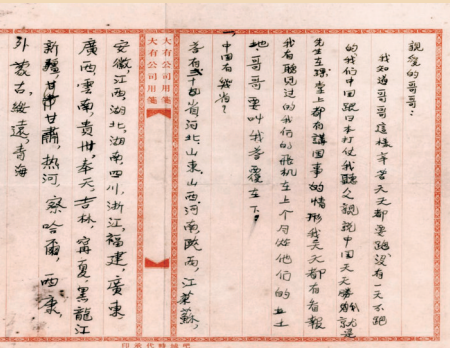 親愛的哥哥:
我知道哥哥這樣辛苦天天都要跑沒有一天不跑
的我們中國跟日本打仗我聽父親說中國天天勝就是
先生在課堂上都有講國事的情形我天天都有看報
我有聽見过的我们的飛机在上个月從他們的土
地.哥哥要叫我答覆在下:
一中國有幾省?
答有省河北,山東,山西,河南,陝西,江蘇,
大有公司用箋
大有公司用箋
安徽,江西,湖北,湖南,四川,浙江,福建,廣東,
廣西,雲南,貴州,奉天,吉林,甯夏,黑龍江
新疆,甘肅,熱河,察哈爾,西康,
外蒙古,綏遠,青海